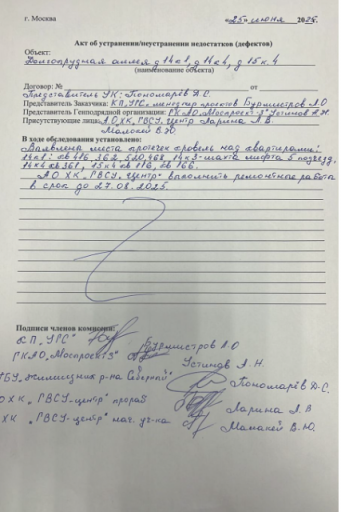 г. Москва «25» июня 2025.
Акт об устранении/неустранении недостатков (дефектов)
Объект:
Долгопрудная аллея д 14к1, д 14к4, д 15к.4
(наименование объекта)
Договор: № от
Представитель УК: Пономарёв Д.С.
Представитель Заказчика: КП „УРС„ менеджер проектов Бурмистров Л.О
Представитель Генподрядной организации: ГК АО„Моспроект-3„ Устинов А.Н.
Присутствующие лица: АО ХК „ГВСУ„ Центр" Ларина Л.В.
В.Ю
В ходе обследования установлено:
Заявлена места протечек кровель над квартирами:
14к1: кв 416, 362, 520, 468, 14к3-шахта лифта 5 подъезд,
14к4 кв361, 15к4 кв 116, кв 166.
АО ХК „ГВСУ„ Центр" выполнить ремонтные работа
в срок до 27.08.2025.
Подписи членов комиссии:
КП „УРС" Бурмистров Л.О
ГК АО „Моспроект3" Устинов А.Н.
ГБУ „Жилищник р-на Северный" Пономарёв Д-С.
ХК „ГВСУ-центр" прораб Ларина Л.В
ХК „ГВСУ-центр" нач. уч-ка В.Ю.